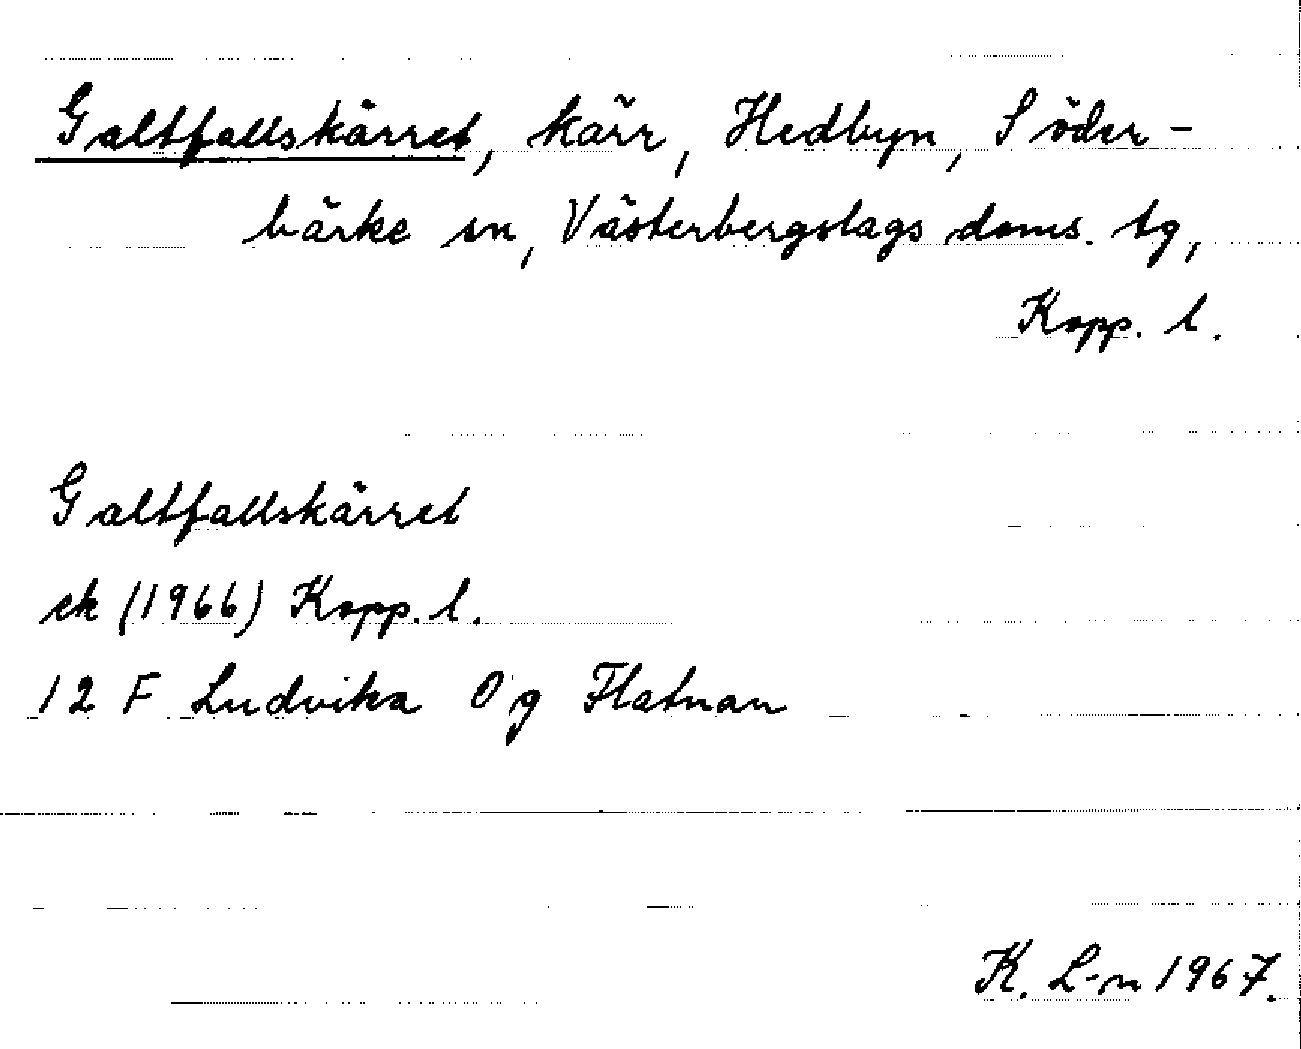 Galtfallskärret, kärr, Hedbyn, Söder-
bärke sn, Västerbergslags doms. tg,
Kopp. l.
Galtfallskärret
ek (1966) Kopp. l.
12 F Ludvika 0 g Flatnan
K. L-n 1967.